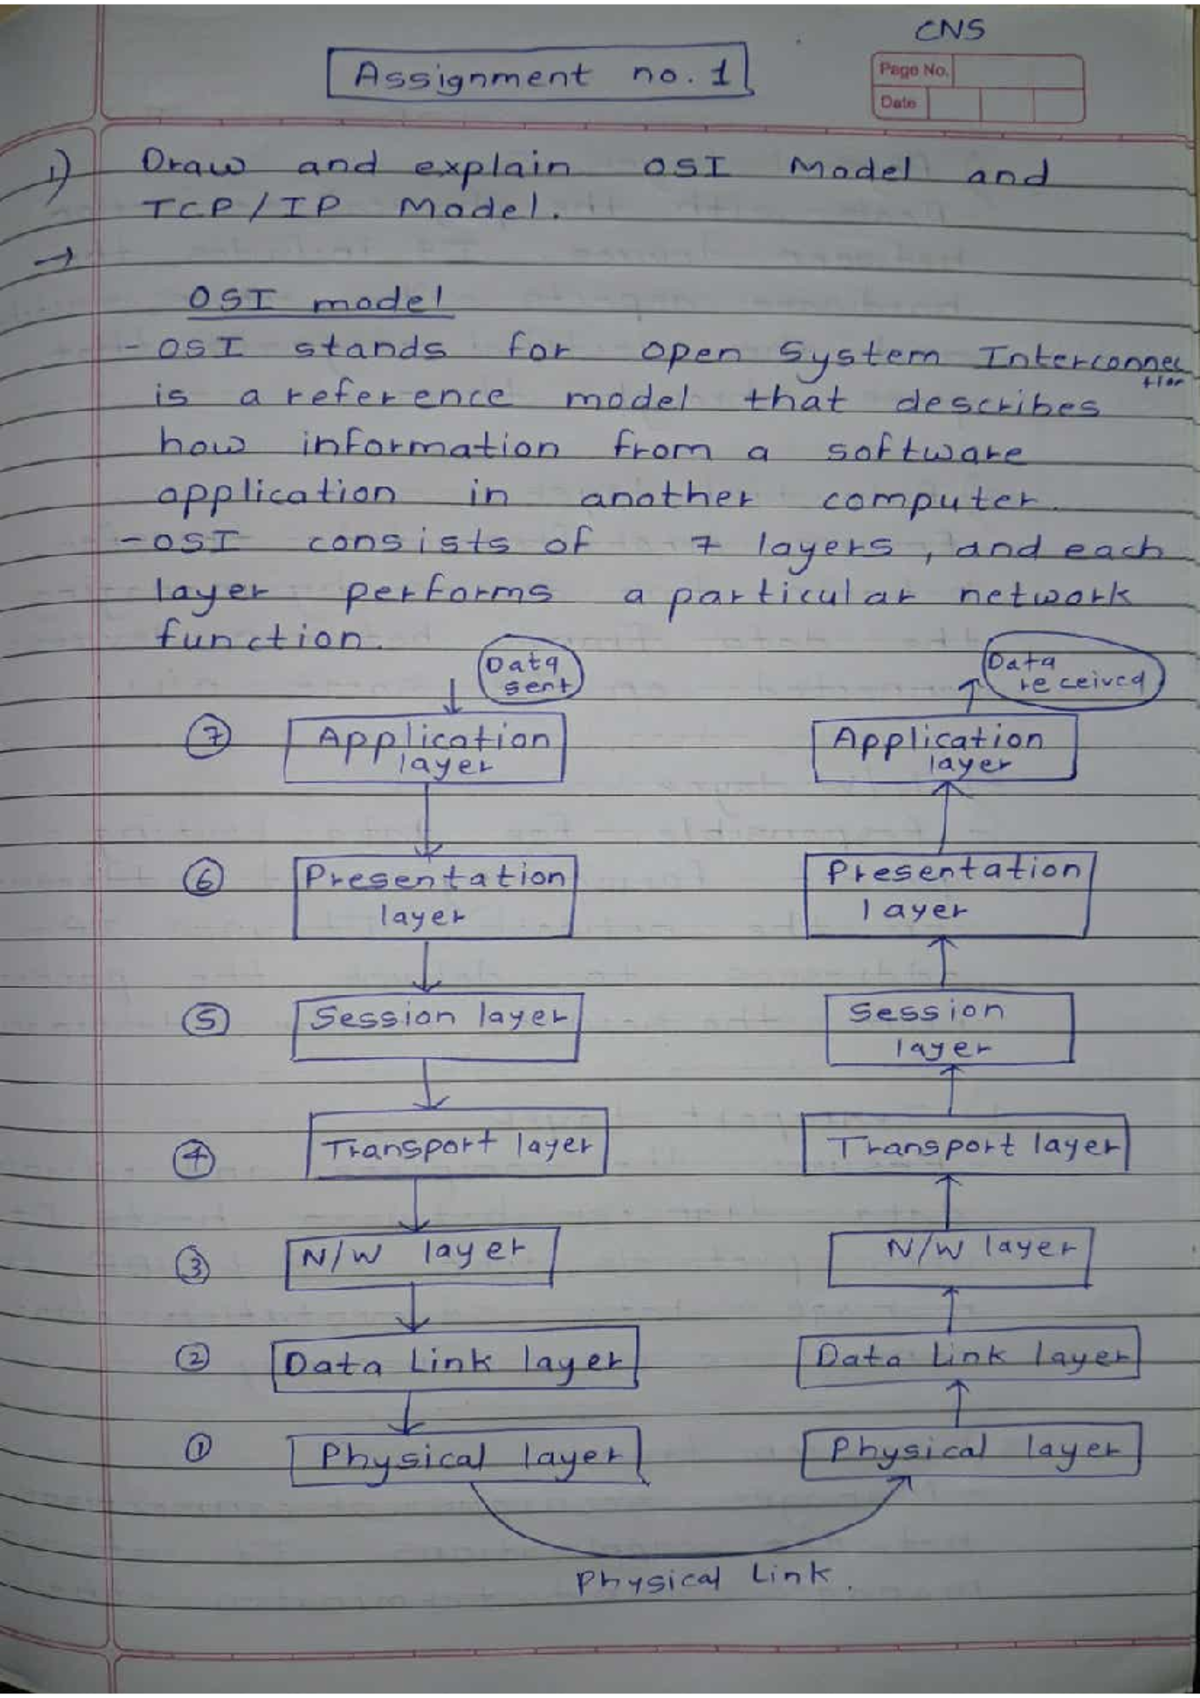 CNS
Assignment no. 1
Page No.
Date
1) Draw and explain OSI Model and
TCP/IP Model.
→
OSI model
- OSI stands for open System Interconnec
tion
is a reference model that describes
how information from a software
application in another computer.
- OSI consists of 7 layers, and each
layer performs a particular network
function.
Data sent
Data received
7 Application layer Application layer
6 Presentation layer Presentation layer
5 Session layer Session layer
4 Transport layer Transport layer
3 N/W layer N/W layer
2 Data Link layer Data Link layer
1 Physical layer Physical layer
Physical Link.